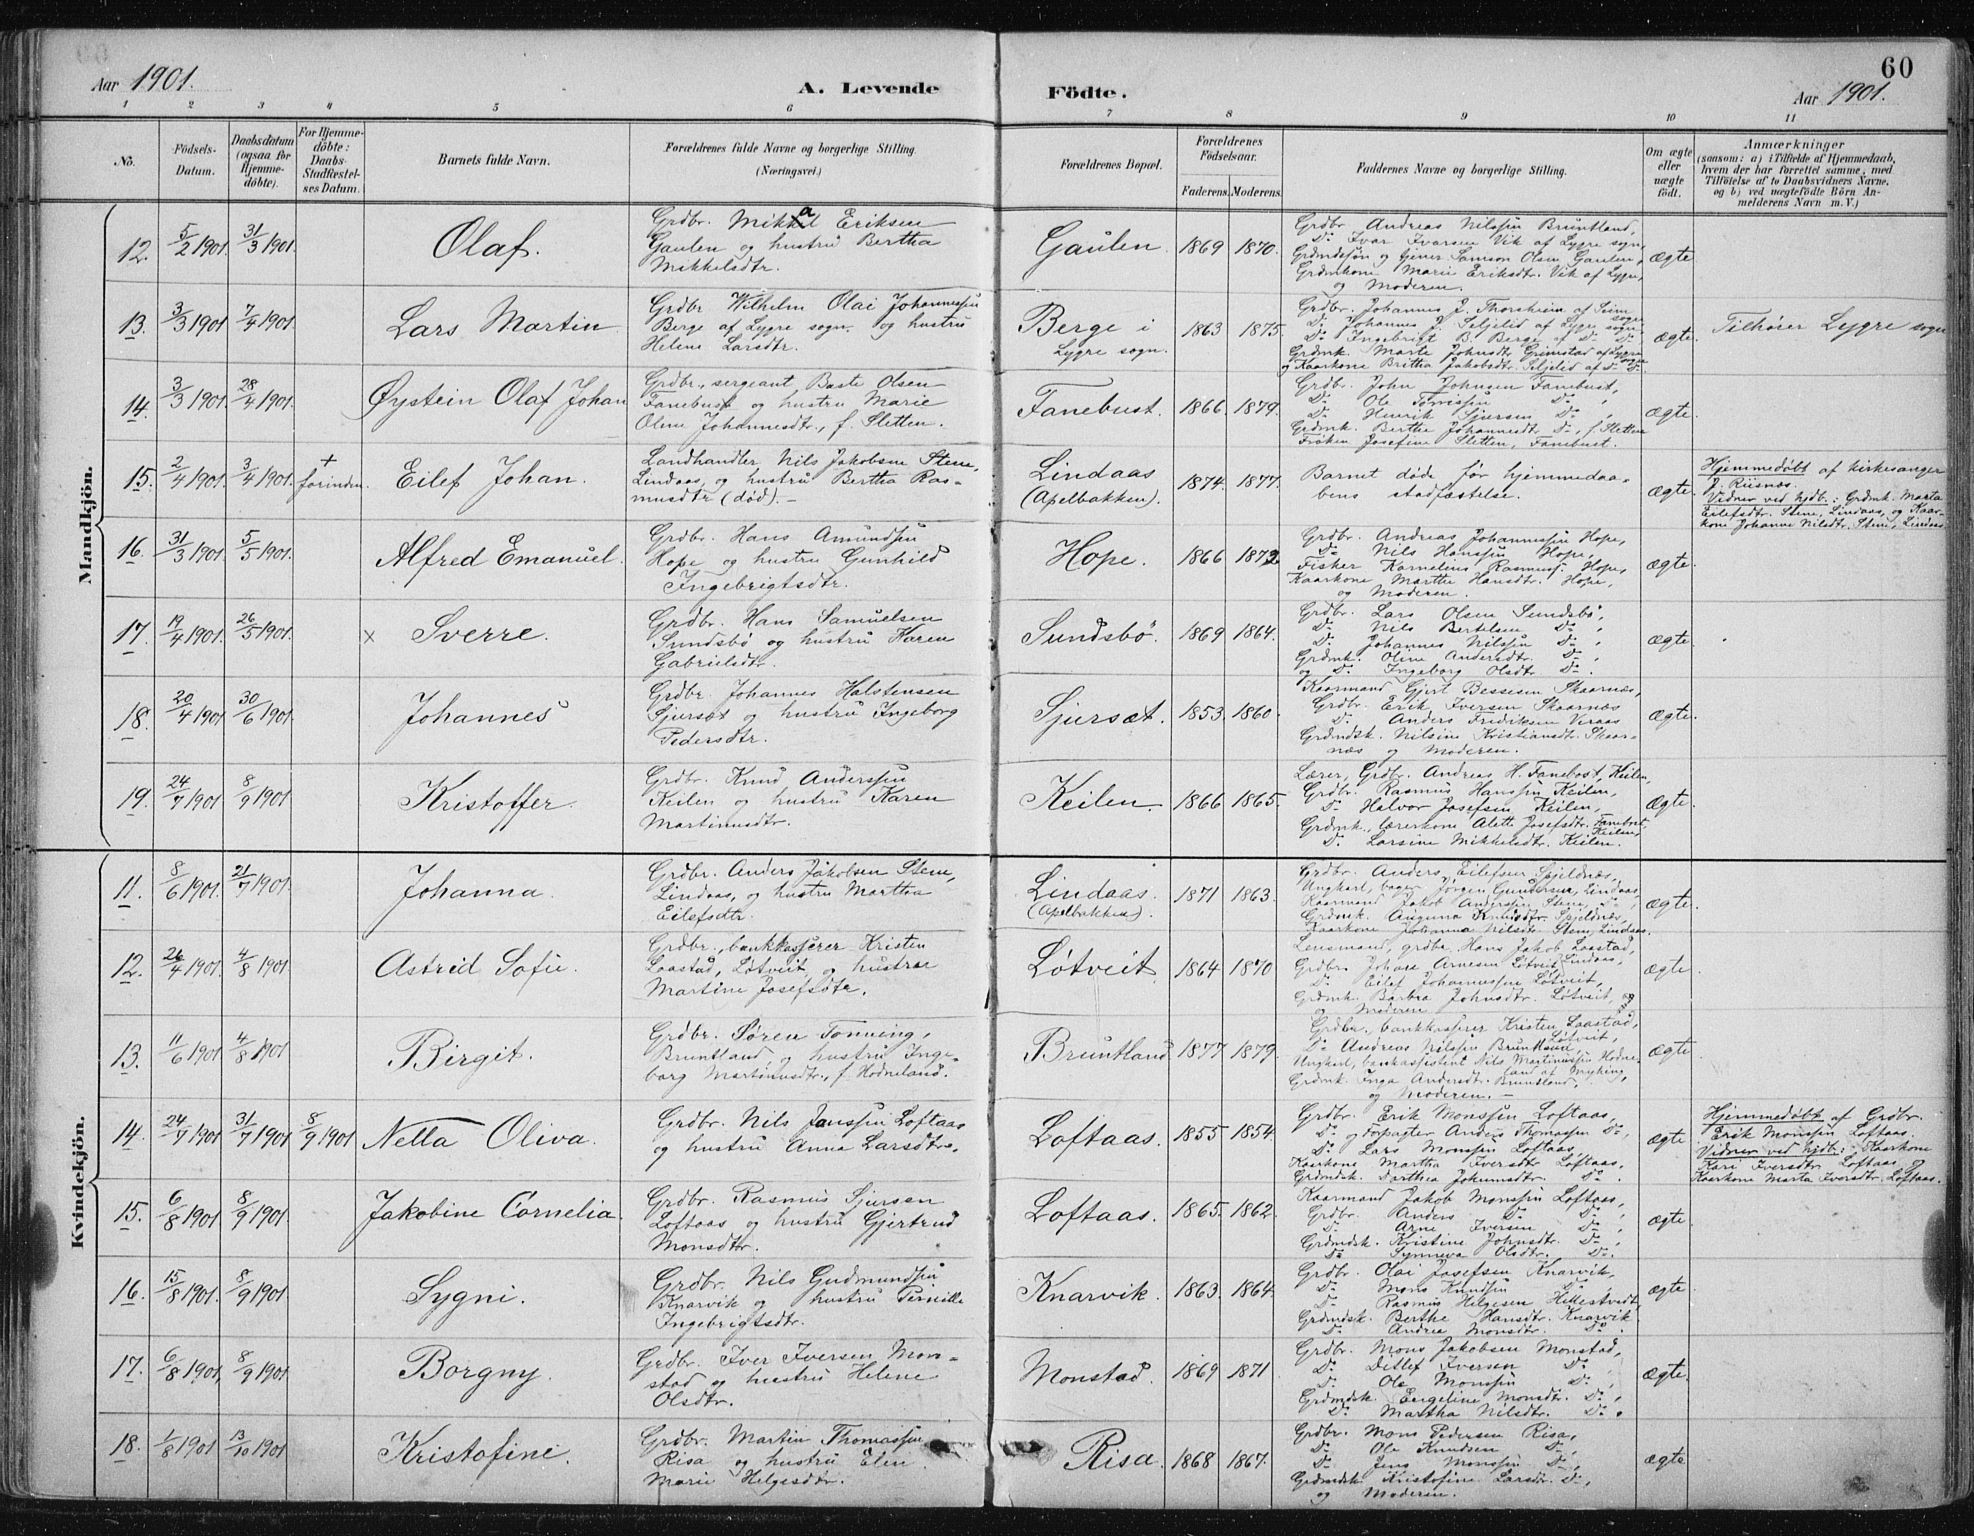 60
Aar 1901.
A. Levende Födte.
Aar 1901.
1 2 3 4 5 6 7 8 9 10 11
No.
Födsels-Datum.
Daabsdatum (ogsaa for Hjemmedöbte).
For Hjemmedöbte: Daabs-Stadfæstelses Datum.
Barnets fulde Navn.
Forældrenes fulde Navne og borgerlige Stilling.
(Næringsvei.)
Forældrenes Bopæl.
Forældrenes Födselsaar.
Faderens. Moderens.
Faddernes Navne og borgerlige Stilling.
Om ægte eller uægte födt.
Anmærkninger
(saasom: a) i Tilfælde af Hjemmedaab, hvem der har forrettet samme, med Tilföielse af to Daabsvidners Navne, og b) ved uægtefödte Börn Anmelderens Navn m. V.)
Mandkjön.
12. 5/2 1901. 31/3 1901. Olaf.
Grdbr. Mikal Eriksen
Gaulen og hustru Bertha
Mikkelsdtr.
Gaulen 1869 1870.
Grdbr Andreas Nilssøn Bruntland,
Do Ivar Ivarsen Vik af Lygre sogn,
Grdmdssøn og Gjener Samson Olsen Gaulen,
Grdmkone Marie Eriksdt. Vik af Lygre,
og Moderen.
ægte
13. 3/3 1901 7/4 1901. Lars Martin
Grdbr Wilhelm Olai Johannessøn
Berge af Lygre sogn. og hustru
Helene Larsdtr.
Berge i
Lygre sogn. 1863 1875.
Grdbr. Johannes J. Thorsheim af Seim sogn
Do Johannes J. Seljelid af Lygre sogn,
Do Ingebrigt B. Berge af Do Do,
Grdmk. Marte Johnsdt Grimstad af Lygre sogn
og Kaarkone Britha Jakobsdt. Seljelid af Do Do
ægte.
Tilhører Lygre sogn
14. 3/3 1901. 28/4 1901. Øystein Olaf Johan
Grdbr., sergeant, Baste Olsen
Fanebust og hustru Marie
Oline Johannesdtr., f. Sletten.
Fanebust. 1866 1879.
Grdbr. John Johnsen Fanebust,
Do Ole Do
Do Henrik Sjursen Do
Grdmk. Berthe Johannesdt Do, f. Sletten
Frøken Josefine Sletten, Fanebust.
ægte
15. 2/4 1901. 3/4 1901. + forinden. Eilef Johan.
Landhandler Nils Jakobsen Stene,
Lindaas, og hustru Bertha Ras-
musdtr (død). -
Lindaas
(Apelbakken). 1874. 1877.
Barnet døde før hjemmedaa-
bens stadfæstelse.
ægte.
Hjemmedøbt af kirkesanger
J. Riisnæs.
Vidner ved hjdb.: Grdmk. Marta
Eilefsdtr. Stene, Lindaas, og Kaar-
kone Johanne Nilsdtr. Stene, Lindaas
16. 31/3 1901. 5/5 1901. Alfred Emanuel.
Grdbr. Hans Amundssøn
Hope og hustru Gunhild
Ingebrigtsdtr.
Hope. 1866 1872
Grdbr. Andreas Johannessøn Hope,
Do Nils Hanssøn Hope,
Fisker Kornelius Rasmuss. Hope,
Kaarkone Marthe Hansdtr. Hope,
og Moderen.
ægte.
17. 19/4 1901. 26/5 1901. x Sverre.
Grdbr. Hans Samuelsen
Sundsbö og hustru Karen
Gabrielsdtr.
Sundsbö. 1869 1864.
Grdbr. Lars Olsen Sundsbö,
Do Nils Bertelsen Do
Do Johannes Nilssøn Do
Grdmk. Oline Andersdtr. Do
og Do Ingeborg Olsdt. Do.
ægte
18. 20/4 1901 30/6 1901. Johannes
Grdbr. Johannes Halstensen
Sjursæt og hustru Ingeborg
Pedersdtr.
Sjursæt. 1853. 1860.
Kaarmand Gjert Bessesen Skaarnæs,
Grdbr. Erik Iversen Skaarnæs
Do Anders Fredriksen Veraas
Grdmdsk. Nilsine Kristiansdtr. Skaar-
næs og Moderen.
ægte.
19. 24/7 1901 8/9 1901. Kristoffer.
Grdbr. Knud Anderssøn
Keilen og hustru Karen
Martinusdtr.
Keilen. 1866 1865.
Lærer, Grdbr. Andreas H. Fanebost, Keilen,
Grdbr. Rasmus Hanssøn Keilen,
Do Halvor Josefsen Keilen,
Grdmk., lærerkone Alette Josefsdtr. Fanebost, Keilen,
Do Larsine Mikkelsdtr. Keilen.
ægte.
Kvindekjön.
11. 8/6 1901. 21/7 1901. Johanna
Grdbr. Anders Jakobsen Stene,
Lindaas, og hustru Martha
Eilefsdtr.
Lindaas.
(Apelbakken). 1871 1863.
Grdbr. Anders Eilefsen Spjeldnæs,
Ungkarl, bager Jørgen Gundersen, Lindaas
Kaarmand Jakob Anderssøn Stene, Do,
Grdmk. Auguna Knudsdtr. Spjeldnæs,
Kaarkone Johanna Nilsdt. Stene, Lindaas.
ægte.
12. 26/4 1901. 4/8 1901. Astrid Sofie.
Grdbr., bankkasserer Kristen
Laastad, Løtveit, og hustru
Martine Josefsdtr.
Løtveit 1864 1870
Lensmand, grdbr. Hans Jakob Laastad, Lindaas,
Grdbr. Johan Arnesen Løtveit,
Do Eilef Johannessøn Løtveit,
Grdmk. Barbra Johnsdtr. Løtveit, og
Moderen
ægte
13. 11/6 1901 4/8 1901 Birgit.
Grdbr. Søren Tonning,
Bruntland, og hustru Inge-
borg Martinusdtr., f. Hodneland.
Bruntland 1877 1879.
Grdbr., bankkasserer Kristen Laastad, Løtveit,
Do Andreas Nilssøn Bruntland,
Ungkarl, bankassistent Nils Martinussøn Hodne-
land af Myking,
Grdmk. Inga Andersdt. Bruntland,
og Moderen. -
ægte.
14. 24/7 1901 31/7 1901 8/9 1901 Nella Oliva.
Grdbr. Nils Janssøn Loftaas
og hustru Anna Larsdtr.
Loftaas. 1855 1854.
Grdbr. Erik Monssøn Loftaas,
Do og Forpagter Anders Thomassøn Do,
Do Lars Monssøn Loftaas,
Kaarkone Martha Iversdtr Loftaas,
Grdmdsk. Dorthea Johannsdtr. Do.
ægte
Hjemmedøbt af Grdbr.
Erik Monssøn Loftaas.
Vidner ved hjdb.: Kaarkone
Kari Iversdtr. Loftaas og
Kaarkone Marta Iversdtr. Loftaas.
15. 6/8 1901 8/9 1901. Jakobine Cornelia.
Grdbr. Rasmus Sjursen
Loftaas og hustru Gjertrud
Monsdtr.
Loftaas. 1865. 1862.
Kaarmand Jakob Monssøn Loftaas,
Grdbr. Anders Do Do
Do Arne Iversen Do
Grdmdsk. Kristine Johnsdtr. Do
Do Synneva Olsdtr. Do
ægte.
16. 15/8 1901. 8/9 1901 Sygni.
Grdbr. Nils Gudmundssøn
Knarvik og hustru Pernille
Ingebrigtsdtr.
Knarvik. 1863. 1864.
Grdbr. Olai Josefsen Knarvik,
Do Mons Knudssøn Do
Do Rasmus Helgesen Hillestvedt,
Grdmdsk. Berthe Hansdtr. Knarvik.
Do Andrea Monsdtr. Do.
ægte.
17. 6/8 1901, 8/9 1901. Borgny.
Grdbr. Iver Iversen Mon-
stad og hustru Helene
Olsdtr.
Monstad. 1869 1871
Grdbr. Mons Jakobsen Monstad,
Do Ditlef Iversen Do
Do Ole Monssøn Do
Grdmdsk. Engeline Monsdtr. Do
Do Martha Nilsdtr. Do.
ægte.
18. 1/8 1901 13/10 1901 Kristofine.
Grdbr. Martin Thomassøn
Risa og hustru Elen
Marie Helgesdtr.
Risa 1868 1867.
Grdbr. Mons Pedersen Risa,
Do Ole Knudsen Do
Do Jens Monssøn Do
Grdmdsk Kristofine Larsdtr. Do,
og Moderen.
ægte.